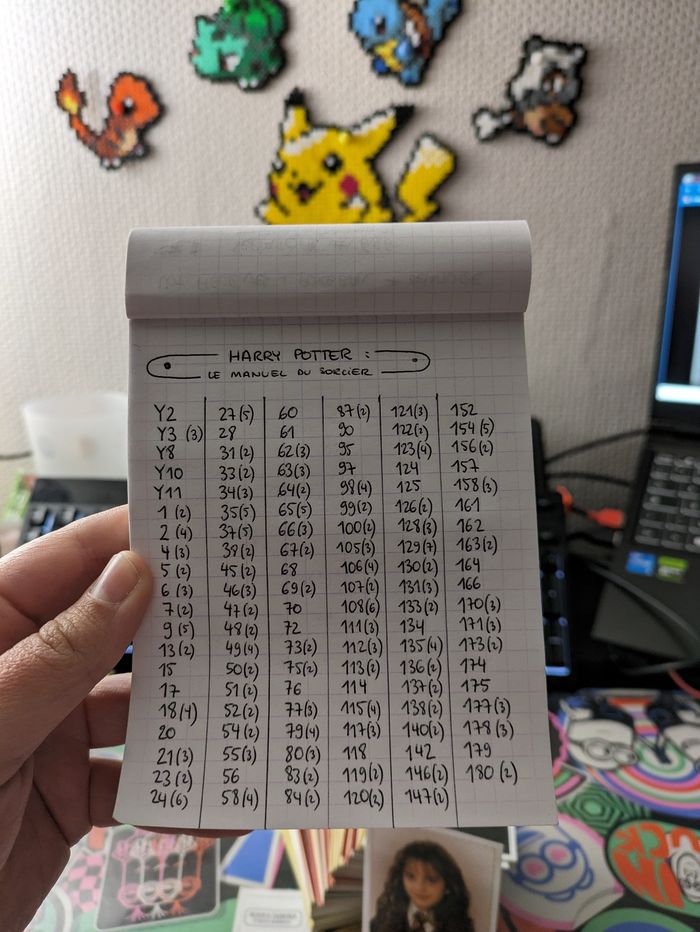 HARRY POTTER :
LE MANUEL DU SORCIER
Y2 27(5) 60 87(2) 121(3) 152
Y3 (3) 28 61 90 122(2) 154(5)
Y8 31(2) 62(3) 95 123(4) 156(2)
Y10 33(2) 63(3) 97 124 157
Y11 34(3) 64(2) 98(4) 125 158(3)
1 (2) 35(5) 65(5) 99(2) 126(2) 161
2 (4) 37(5) 66(3) 100(2) 128(3) 162
4 (3) 38(2) 67(2) 105(3) 129(7) 163(2)
5 (2) 45(2) 68 106(4) 130(2) 164
6 (3) 46(3) 69(2) 107(2) 131(3) 166
7 (2) 47(2) 70 108(6) 133(2) 170(3)
9 (5) 48(2) 72 111(3) 134 171(3)
13(2) 49(4) 73(2) 112(3) 135(4) 173(2)
15 50(2) 75(2) 113(2) 136(2) 174
17 51(2) 76 114 137(2) 175
18(4) 52(2) 77(3) 115(4) 138(2) 177(3)
20 54(2) 79(4) 117(3) 140(2) 178(3)
21(3) 55(3) 80(3) 118 142 179
23(2) 56 83(2) 119(2) 146(2) 180 (2)
24(6) 58(4) 84(2) 120(2) 147(2)